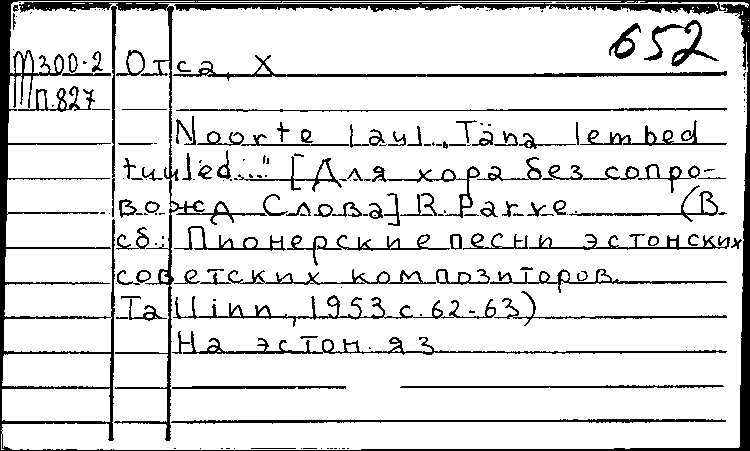 652
М300-2 Отса, Х
П.827
Noorte laul „Täna lembed
tuuled..." [Для хора без сопро-
вожд Слова] R. Parve. (В
сб.: Пионерские песни эстонских
советских композиторов.
Tallinn, 1953 с. 62-63)
На эстон. яз